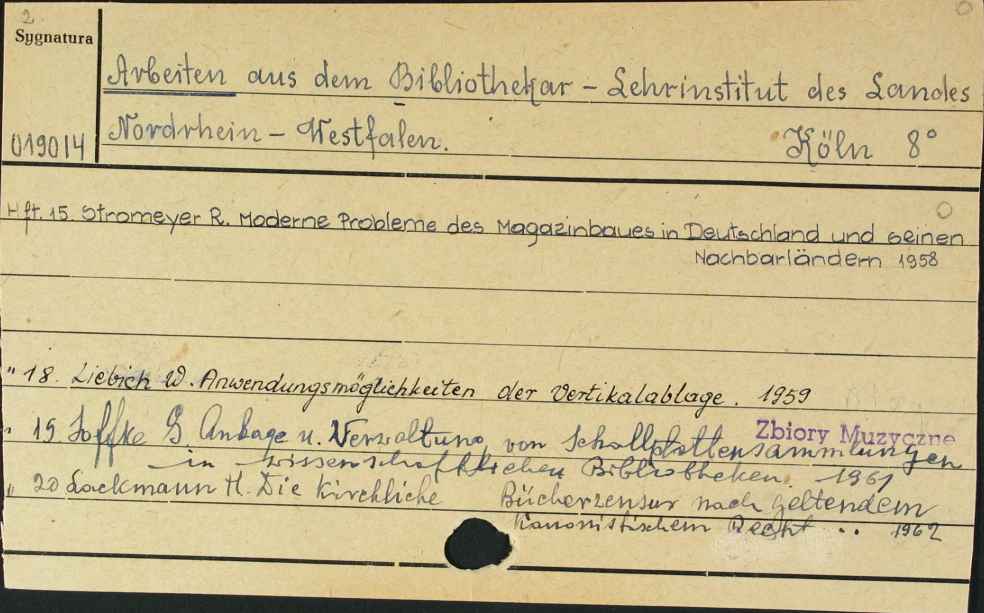 2
Sygnatura
Arbeiten aus dem Bibliothekar - Lehrinstitut des Landes
019014
Nordrhein - Westfalen. Köln 8°
Hft. 15. Stromeyer R. Moderne Probleme des Magazinbaues in Deutschland und seinen
Nachbarländern 1958
" 18. Liebich W. Anwendungsmöglichkeiten der Vertikalablage. 1959
Zbiory Muzyczne
" 19 Soffke G. Anlage u. Verwaltung von Schallplattensammlungen
in wissenschaftlichen Bibliotheken. 1961
" 20 Lackmann H. Die Kirchliche Bücherzensur nach geltendem
Kanonistischem Recht .. 1962